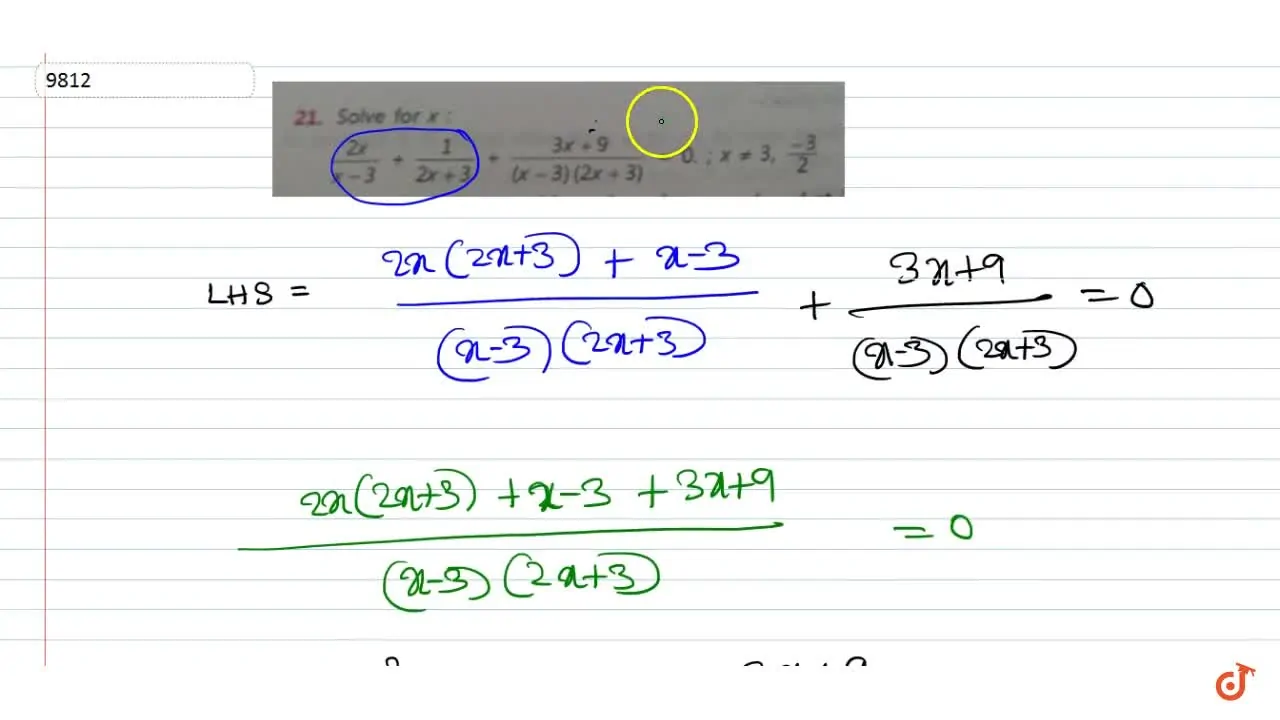 9812
21. Solve for x :
2x/x−3 + 1/2x+3 + 3x+9/(x−3)(2x+3) = 0. ; x ≠ 3, −3/2
LHS = 2x(2x+3) + x−3/(x−3)(2x+3) + 3x+9/(x−3)(2x+3) = 0
2x(2x+3) + x−3 + 3x+9/(x−3)(2x+3) = 0